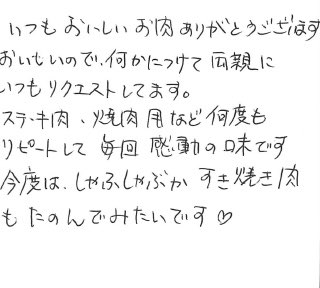 いつも おいしい お肉 ありがとうございます
おいしいので、何かにつけて 両親に
いつもリクエストしてます。
ステーキ肉、焼肉用など何度も
リピートして 毎回 感動の味です
今度は、しゃぶしゃぶか すき焼き肉
も たのんでみたいです♡